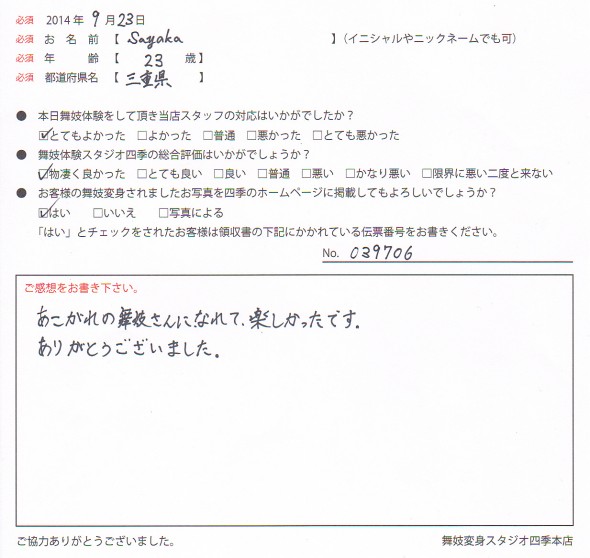 必須 2014年 9月23日
必須 お名前【 Sayaka 】(イニシャルやニックネームでも可)
必須 年齢【 23 歳】
必須 都道府県名【 三重県 】
● 本日舞妓体験をして頂き当店スタッフの対応はいかがでしたか?
☑とてもよかった □よかった □普通 □悪かった □とても悪かった
● 舞妓体験スタジオ四季の総合評価はいかがでしょうか?
☑物凄く良かった □とても良い □良い □普通 □悪い □かなり悪い □限界に悪い二度と来ない
● お客様の舞妓変身されましたお写真を四季のホームページに掲載してもよろしいでしょうか?
☑はい □いいえ □写真による
「はい」とチェックをされたお客様は領収書の下記にかかれている伝票番号をお書きください。
No. 039706
ご感想をお書き下さい。
あこがれの舞妓さんになれて、楽しかったです。
ありがとうございました。
ご協力ありがとうございました。 舞妓変身スタジオ四季本店